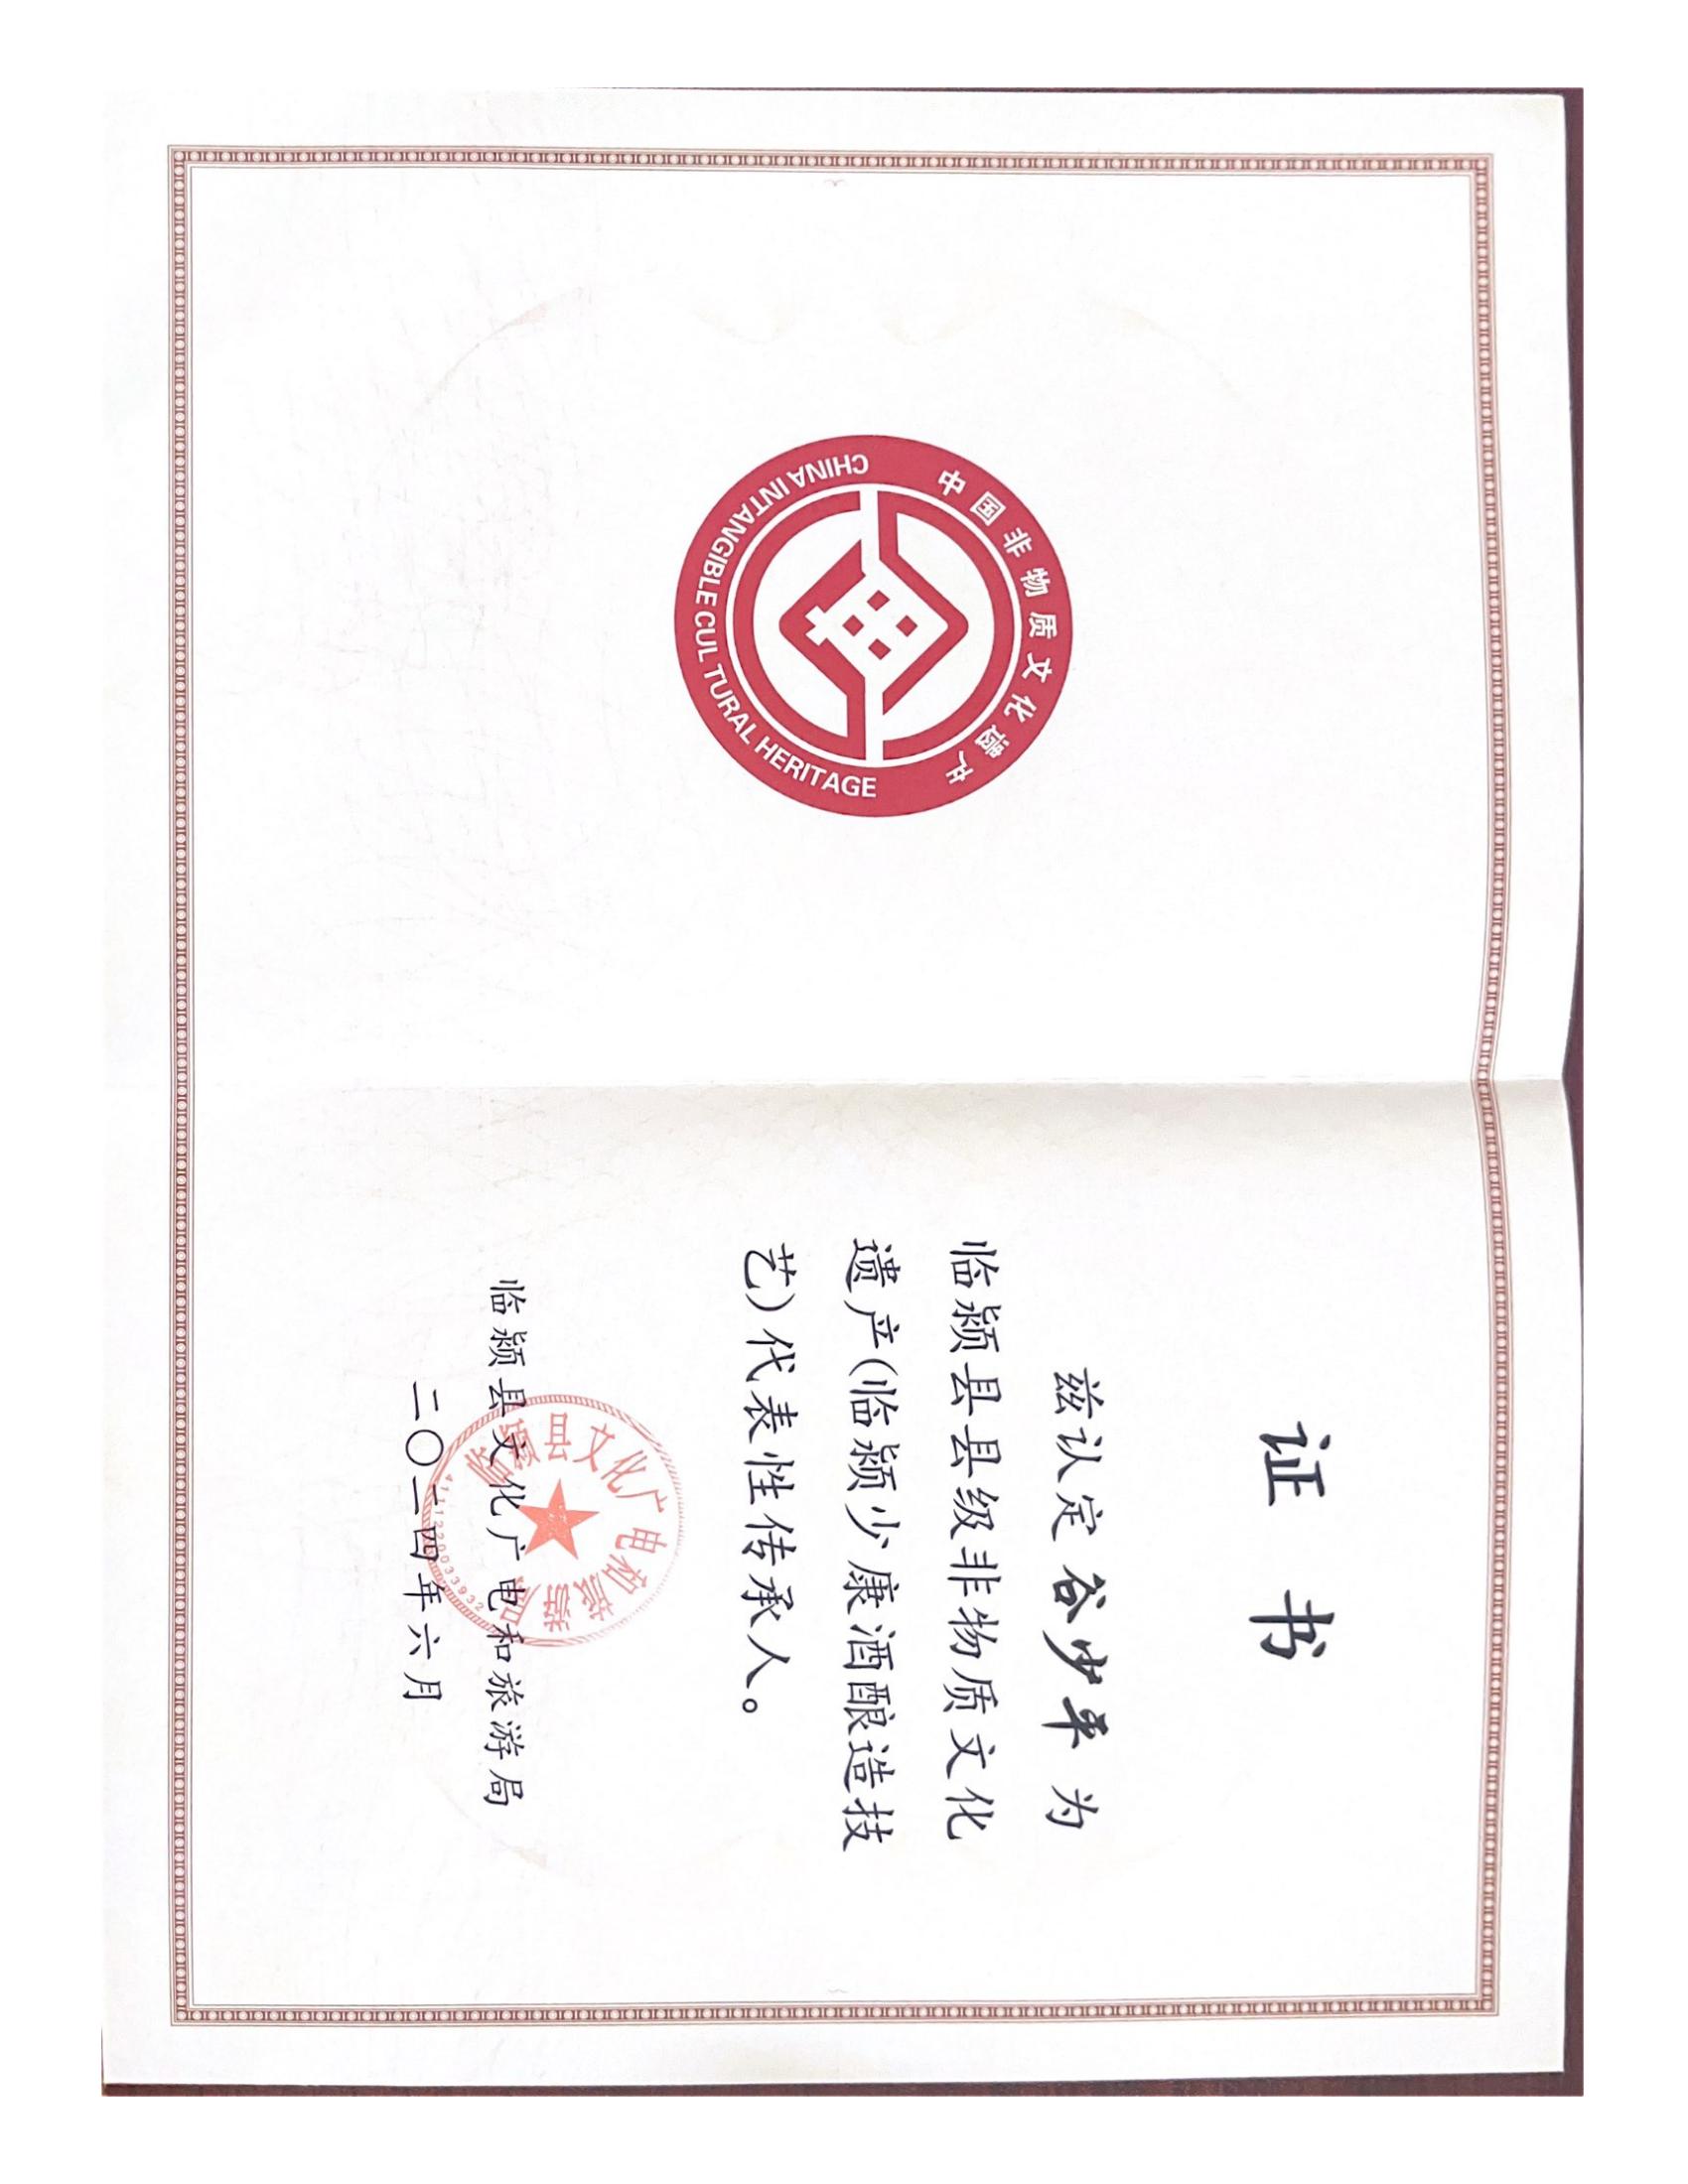 中国非物质文化遗产
CHINA INTANGIBLE CULTURAL HERITAGE
证书
兹认定 谷少平 为
临颍县县级非物质文化
遗产(临颍少康酒酿造技
艺)代表性传承人。
临颍县文化广电和旅游局
4111220033932
临颍县文化广电和旅游局
二〇二四年六月